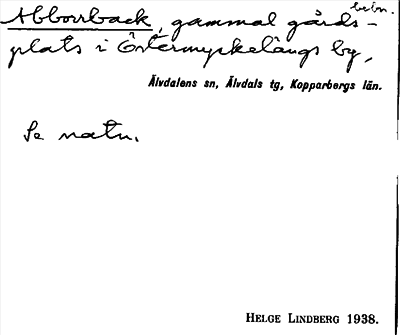 bebn.
Abborrback, gammal gårds-
plats i Östermyckelängs by,
Älvdalens sn, Älvdals tg, Kopparbergs län.
Se natn.
HELGE LINDBERG 1938.